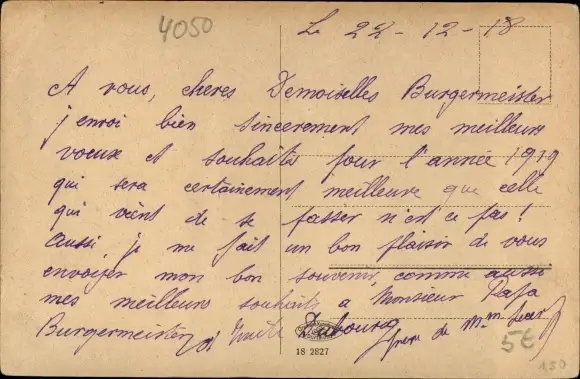 4050
Le 22-12-18
A vous, cheres Demoiselles Burgermeister
j'envoi bien sincerement mes meilleurs
voeux et souhaits pour l'année 1919
qui sera certainement meilleure que celle
qui vient de se passer n'est ce pas!
Aussi, je me fait un bon plaisir de vous
envoyer mon bon souvenir, comme aussi
mes meilleurs souhaits a Monsieur Papa
Burgermeister
frere de Mm
5€
18 2827
150